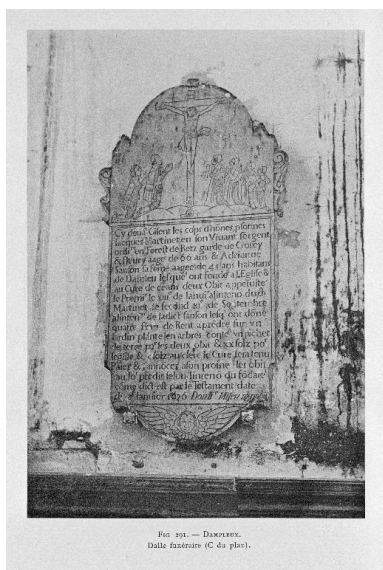 Cy devāt Gisent les corps d'honestes psonnes
Jacques Martinet en son Vivant sergent
ordi en Forest de Retz garde de Croisy
& Fleury aagé de 66 ans & Adrianne
Sanson sa feme aagee de 4 ans habitans
de Dāpleu lesquel ont fondé a l'Eglise &
au Curé de ceans deux Obit appésuite
le Premr le xiie de Janui a l'intenō dudt
Martinet le second 20e de Septembre
a l'intenn de ladict sanson lesq ont doné
quatre livres de Rent a prēdre sur vn
Jardin planté en arbres conten vn pichet
de terre pr les deux obit xxx solz pr
l'eglise & solz au clerc le Curé sera tenu
faire & annōcer a son prosne les obit
au jor predit selon l'intenō du fōdateur
come dict est par le Testament daté
du Janvier 1636
Fig 291. — Dampleux.
Dalle funéraire (C du plan).